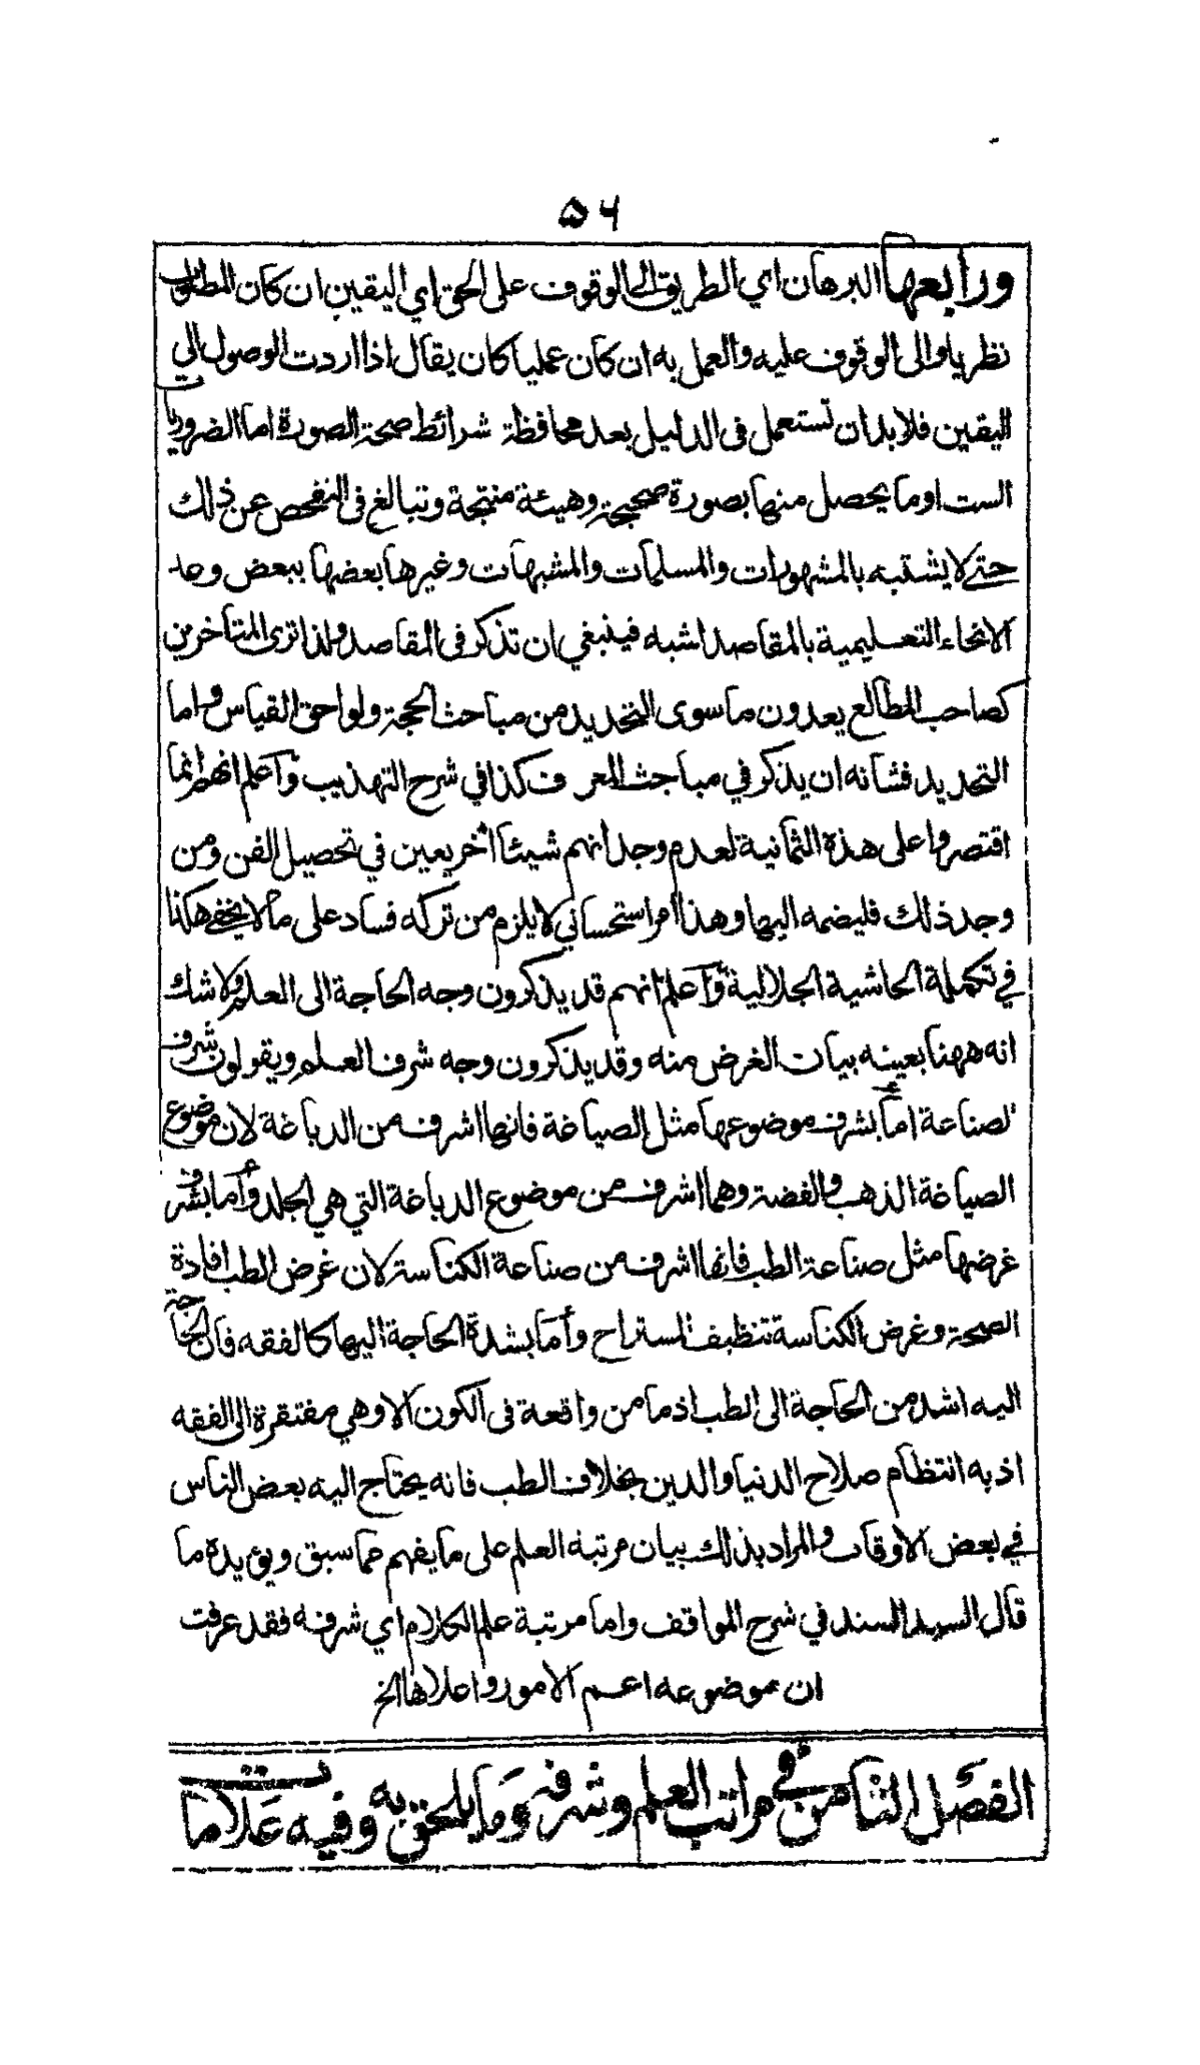 ٥٦
ورابعها البرهان اي الطريق الى الوقوف على الحق اي اليقين ان كان المطلوب
نظريا والى الوقوف عليه والعمل به ان كان عمليا كان يقال اذا اردت الوصول الى
اليقين فلا بد ان تستعمل فى الدليل بعد محافظة شرائط صحة الصورة اما الضروريات
الست او ما يحصل منها بصورة صحيحة وهيئة منتجة وتبالغ فى التفحص عن ذلك
حتى لا يشتبه بالمشهورات والمسلمات والمشبهات وغيرها بعضها ببعض وعد
الانحاء التعليمية بالمقاصد اشبه فينبغي ان تذكر فى المقاصد ولذا ترى المتاخرين
كصاحب المطالع يعدون ما سوى التحديد من مباحث الحجة ولواحق القياس واما
التحديد فشانه ان يذكر في مباحث المعرف كذا في شرح التهذيب واعلم انهم انما
اقتصروا على هذه الثمانية لعدم وجدانهم شيئا اخر يعين في تحصيل الفن ومن
وجد ذلك فليضمه اليها وهذا امر استحساني لا يلزم من تركه فساد على ما لا يخفى هكذا
في تكملة الحاشية الجلالية واعلم انهم قد يذكرون وجه الحاجة الى العلم ولا شك
انه ههنا بعينه بيان الغرض منه وقد يذكرون وجه شرف العلم ويقولون شرف
الصناعة اما بشرف موضوعها مثل الصياغة فانها اشرف من الدباغة لان موضوع
الصياغة الذهب والفضة وهما اشرف من موضوع الدباغة التي هي الجلد واما بشرف
غرضها مثل صناعة الطب فانها اشرف من صناعة الكناسة لان غرض الطب افادة
الصحة وغرض الكناسة تنظيف المستراح واما بشدة الحاجة اليها كالفقه فان الحاجة
اليه اشد من الحاجة الى الطب اذ ما من واقعة فى الكون الا وهي مفتقرة الى الفقه
اذ به انتظام صلاح الدنيا والدين بخلاف الطب فانه يحتاج اليه بعض الناس
في بعض الاوقات والمراد بذلك بيان مرتبة العلم على ما يفهم مما سبق ويؤيده ما
قال السيد السند في شرح المواقف واما مرتبة علم الكلام اي شرفه فقد عرفت
ان موضوعه اعم الامور واعلاها الخ
الفصل الثامن في مراتب العلم وشرفه وما يلحق به وفيه علامات